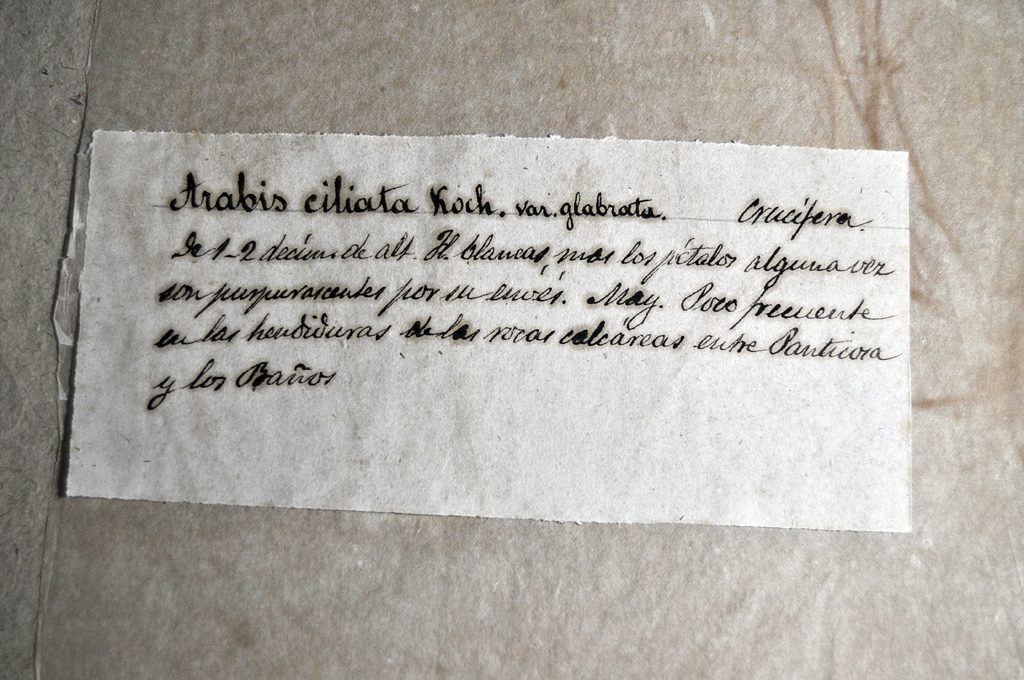 Arabis ciliata Koch. var. glabrata. Crucífera.
De 1-2 decím. de alt. Fl. blancas, mas los pétalos alguna vez
son purpurascentes por su envés. May. Poco frecuente
en las hendiduras de las rocas calcáreas entre Panticosa
y los Baños